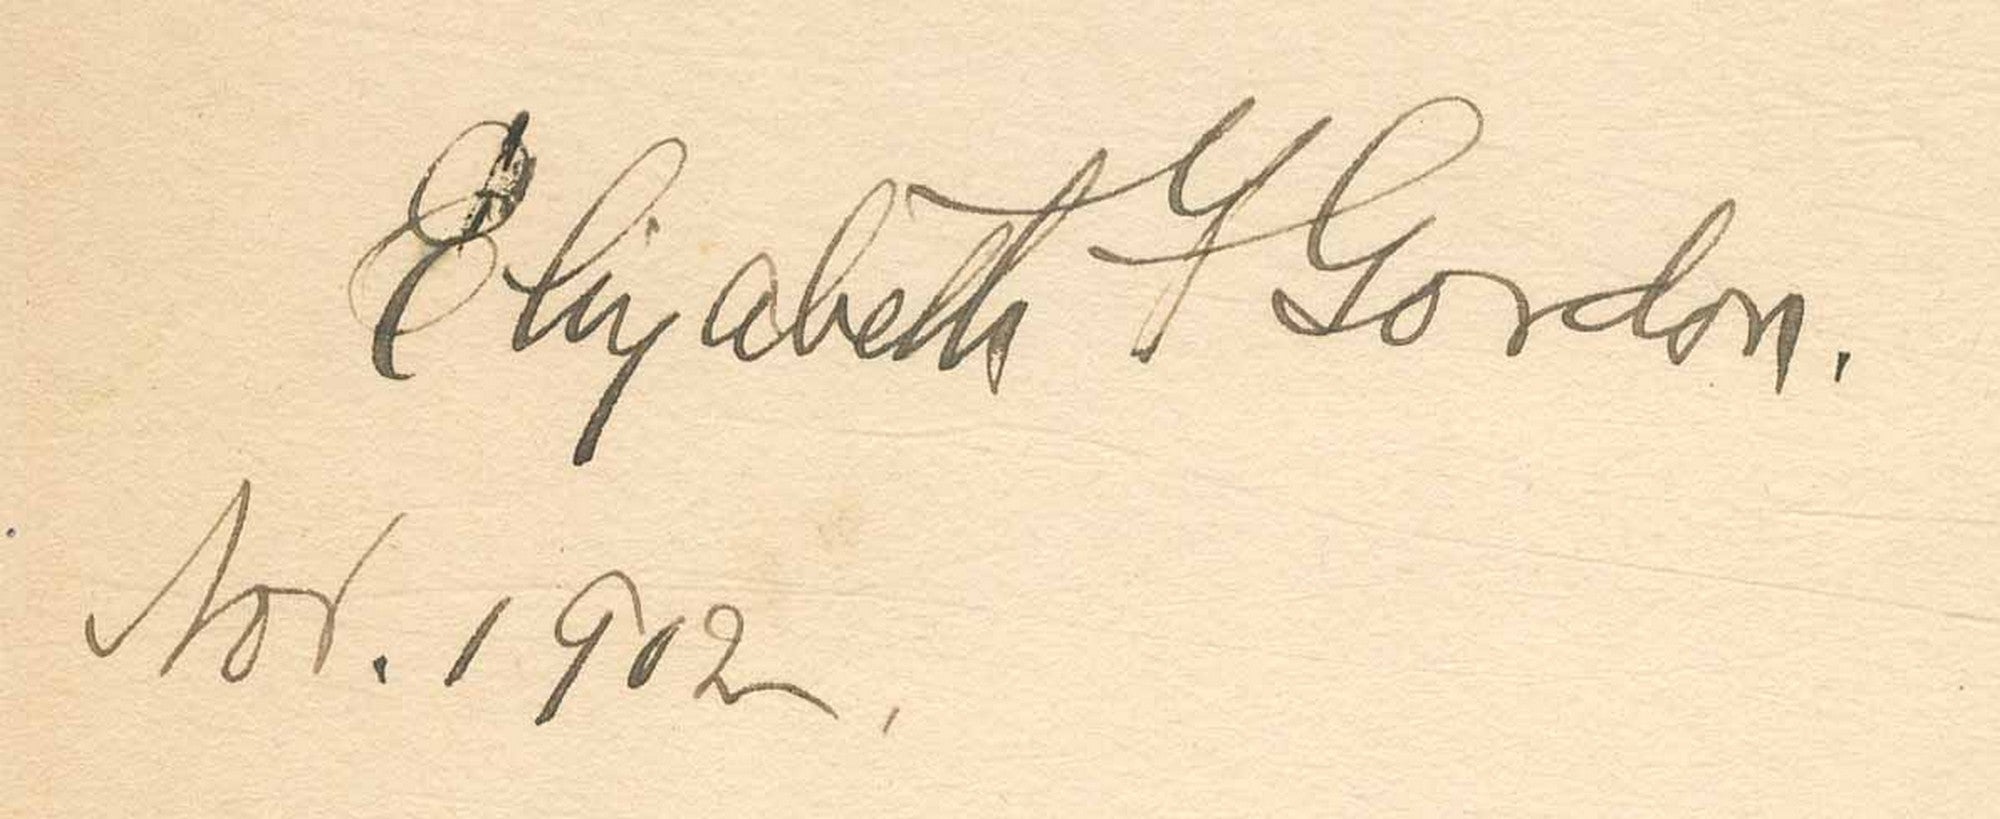 Elizabeth F Gordon.
Nov. 1902.